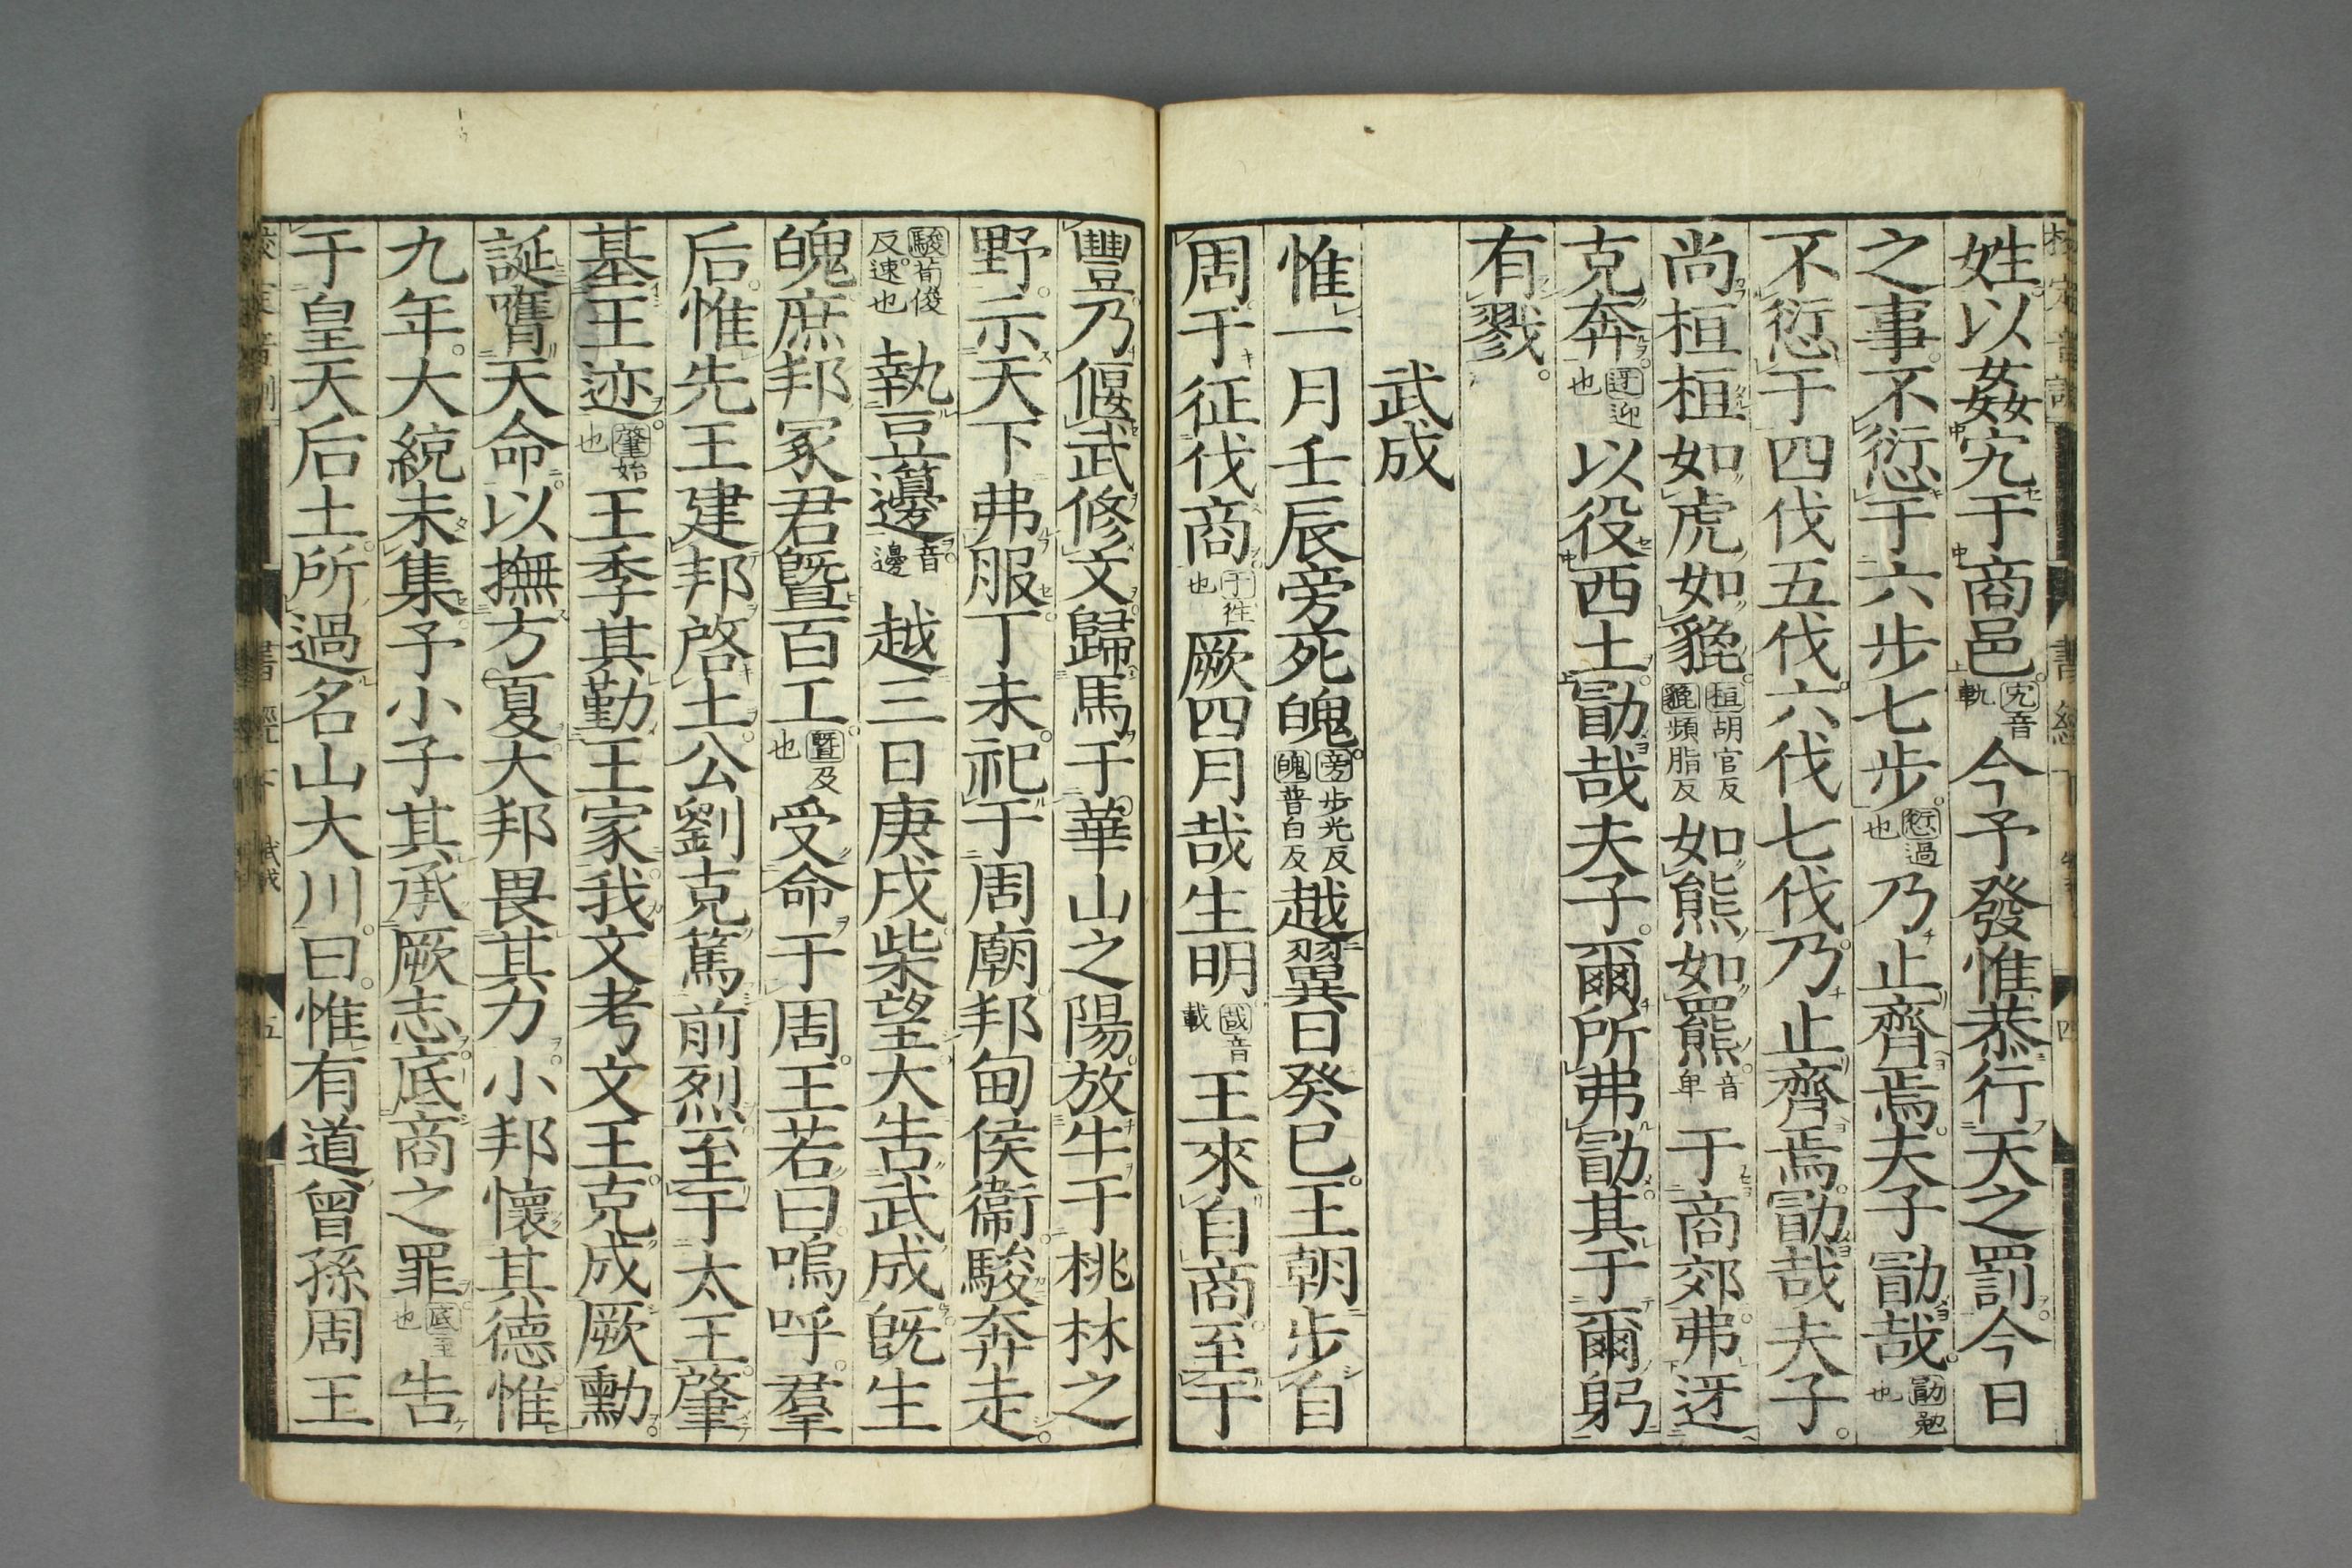 姓以姦宄于商邑宄音軌今予發惟恭行天之罰今日
之事不愆于六步七步愆過也乃止齊焉夫子勖哉勖勉也
不愆于四伐五伐六伐七伐乃止齊焉勖哉夫子
尚桓桓如虎如貔桓胡官反貔頻脂反如熊如羆音卑于商郊弗迓
克奔迓迎也以役西土勖哉夫子爾所弗勖其于爾躬
有戮
武成
惟一月壬辰旁死魄旁步光反魄普白反越翼日癸巳王朝步自
周于征伐商于往也厥四月哉生明哉音載王來自商至于
豐乃偃武修文歸馬于華山之陽放牛于桃林之
野示天下弗服丁未祀于周廟邦甸侯衞駿奔走
駿荀俊反速也執豆籩音邊越三日庚戌柴望大告武成旣生
魄庶邦冢君曁百工曁及也受命于周王若曰嗚呼羣
后惟先王建邦啓土公劉克篤前烈至于太王肇
基王迹肇始也王季其勤王家我文考文王克成厥勳
誕膺天命以撫方夏大邦畏其力小邦懷其德惟
九年大統未集予小子其承厥志底商之罪底至也告
于皇天后土所過名山大川曰惟有道曾孫周王
書經下 武成 五